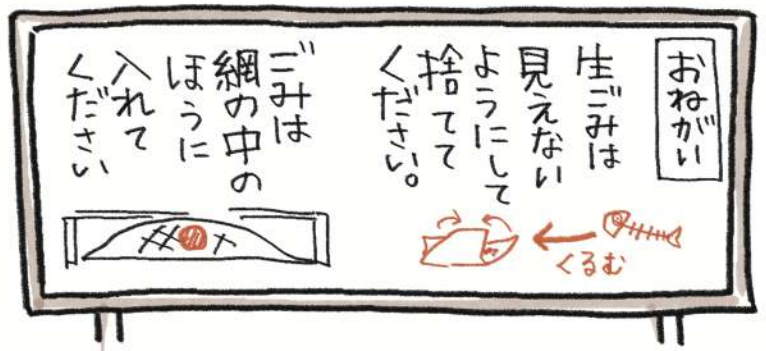 おねがい
生ごみは
見えない
ようにして
捨てて
ください。
くるむ
ごみは
網の中の
ほうに
入れて
ください